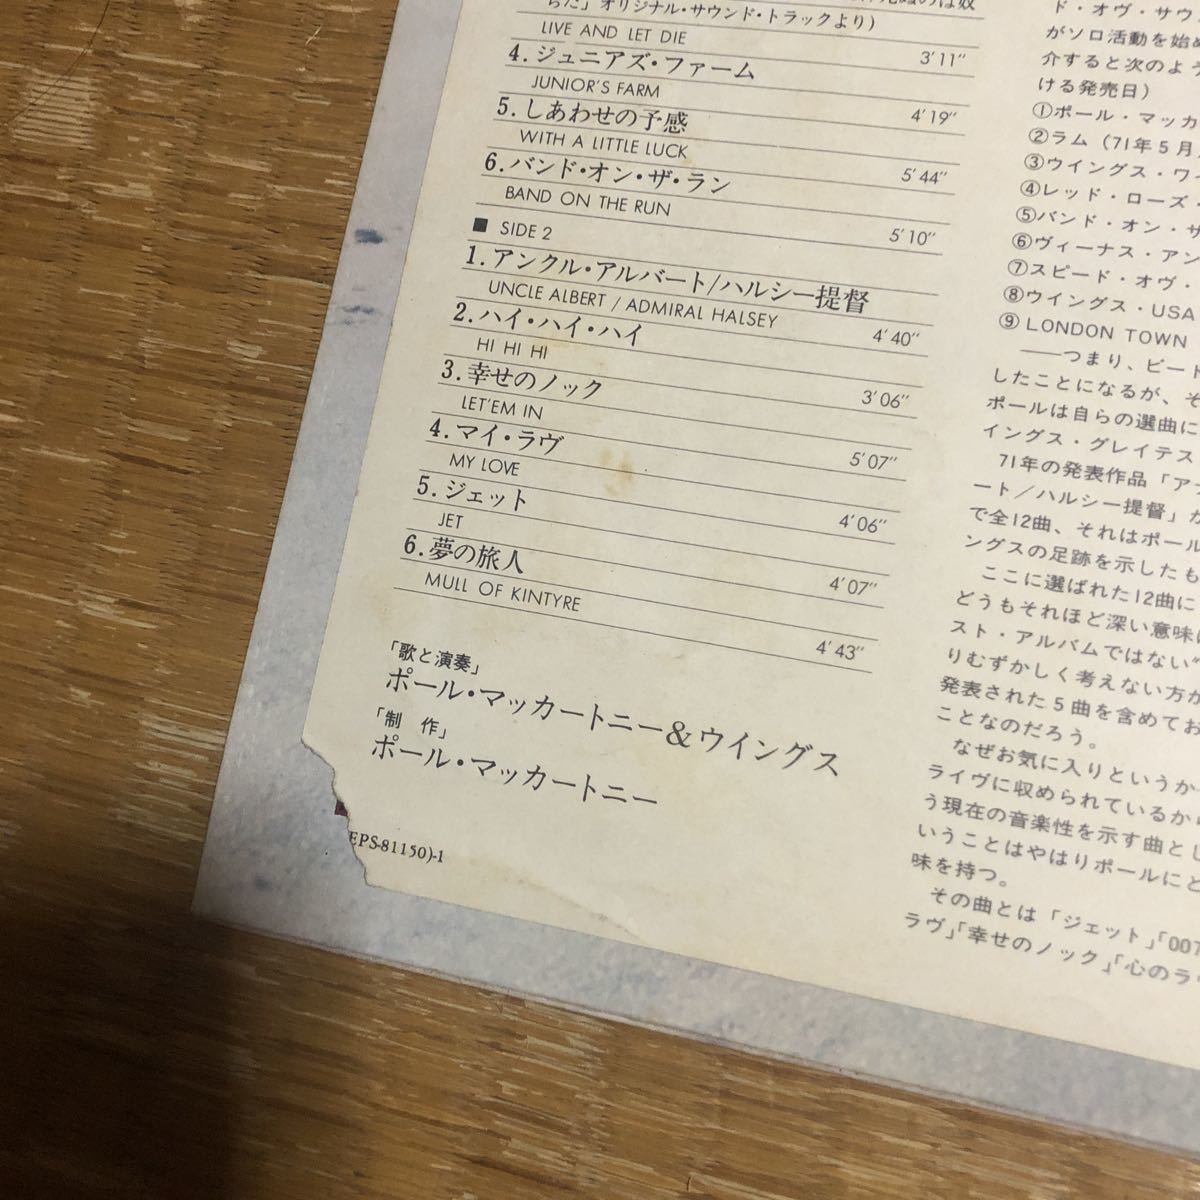 らた」オリジナル・サウンド・トラックより)
LIVE AND LET DIE 3'11"
4.ジュニアズ・ファーム
JUNIOR'S FARM 4'19"
5.しあわせの予感
WITH A LITTLE LUCK 5'44"
6.バンド・オン・ザ・ラン
BAND ON THE RUN 5'10"
■ SIDE 2
1.アンクル・アルバート/ハルシー提督
UNCLE ALBERT / ADMIRAL HALSEY 4'40"
2.ハイ・ハイ・ハイ
HI HI HI 3'06"
3.幸せのノック
LET'EM IN 5'07"
4.マイ・ラヴ
MY LOVE 4'06"
5.ジェット
JET 4'07"
6.夢の旅人
MULL OF KINTYRE 4'43"
「歌と演奏」
ポール・マッカートニー&ウイングス
「制 作」
ポール・マッカートニー
EPS-81150)-1
ド・オヴ・サウ
がソロ活動を始め
介すると次のよう
ける発売日)
①ポール・マッカ
②ラム (71年5月
③ウイングス・ワ
④レッド・ローズ
⑤バンド・オン・ザ
⑥ヴィーナス・アン
⑦スピード・オヴ・
⑧ウイングス・USA
⑨ LONDON TOWN
――つまり、ビート
したことになるが、そ
ポールは自らの選曲に
イングス・グレイテス
71年の発表作品「ア
ート/ハルシー提督」か
で全12曲、それはポール
ングスの足跡を示したも
ここに選ばれた12曲に
どうもそれほど深い意味は
スト・アルバムではない"
りむずかしく考えない方が
発表された5曲を含めてお
ことなのだろう。
なぜお気に入りというか
ライヴに収められているから
う現在の音楽性を示す曲とし
いうことはやはりポールにと
味を持つ。
その曲とは「ジェット」「007
ラヴ」「幸せのノック」「心のラ